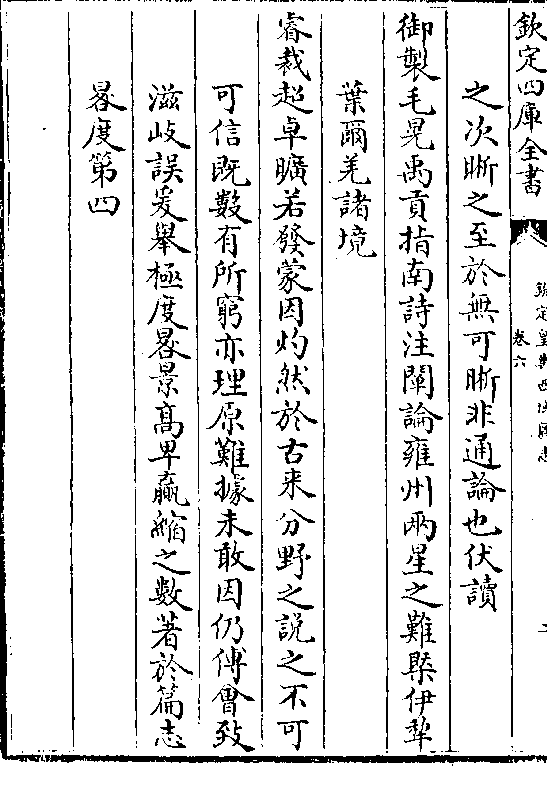 欽定四庫全書
欽定皇輿西域圖志
卷六
二
之次晰之至於無可晰非通論也伏讀
御製毛晃禹貢指南詩注闡論雍州兩星之難槩伊犂
葉爾羌諸境
睿裁超卓曠若發蒙因灼然於古来分野之説之不可
可信既數有所窮亦理原難據未敢因仍傅㑹致
滋歧誤爰舉極度晷景髙卑贏縮之數著於篇志
晷度第四